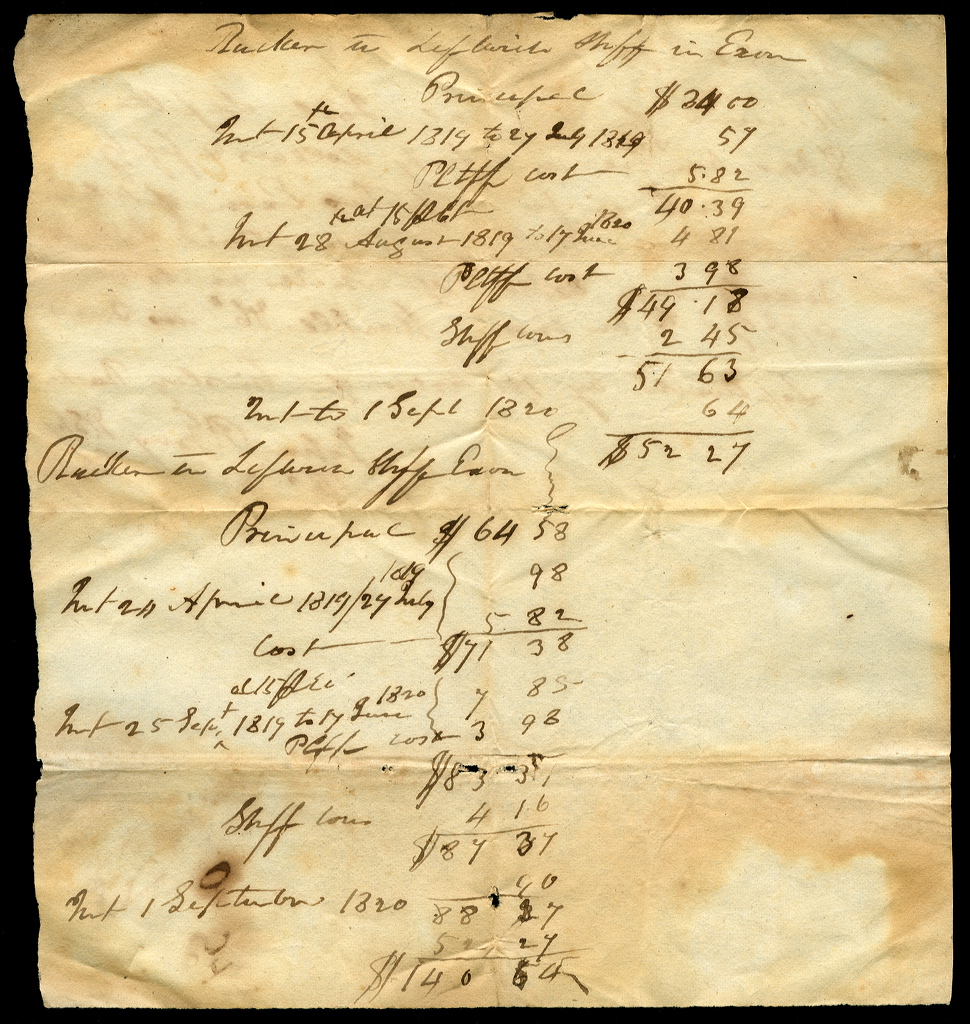 Rucker vs Leftwich Shff in Exon
Principal $34 00
Int 15th April 1819 to 27 July 1819 57
Pltff cost 5.82
40.39
at 15 pct
Int 28 August 1819 to 17 June 1820 4 81
Pltff cost 3 98
$49.18
Shff coms 2 45
51 63
Int to 1 Sept 1820 64
$52 27
Rucker vs Leftwich Shff Exon
Principal $64 58
Int 20 April 1819/27 July 1819 98
cost 5 82
$71 38
at 15 pct
Int 25 Sept 1819 to 17 June 1820 7 85
Pltff cost 3 98
$83 31
Shff coms 4 16
$87 37
Int 1 September 1820 90
88 27
52 27
$140 54